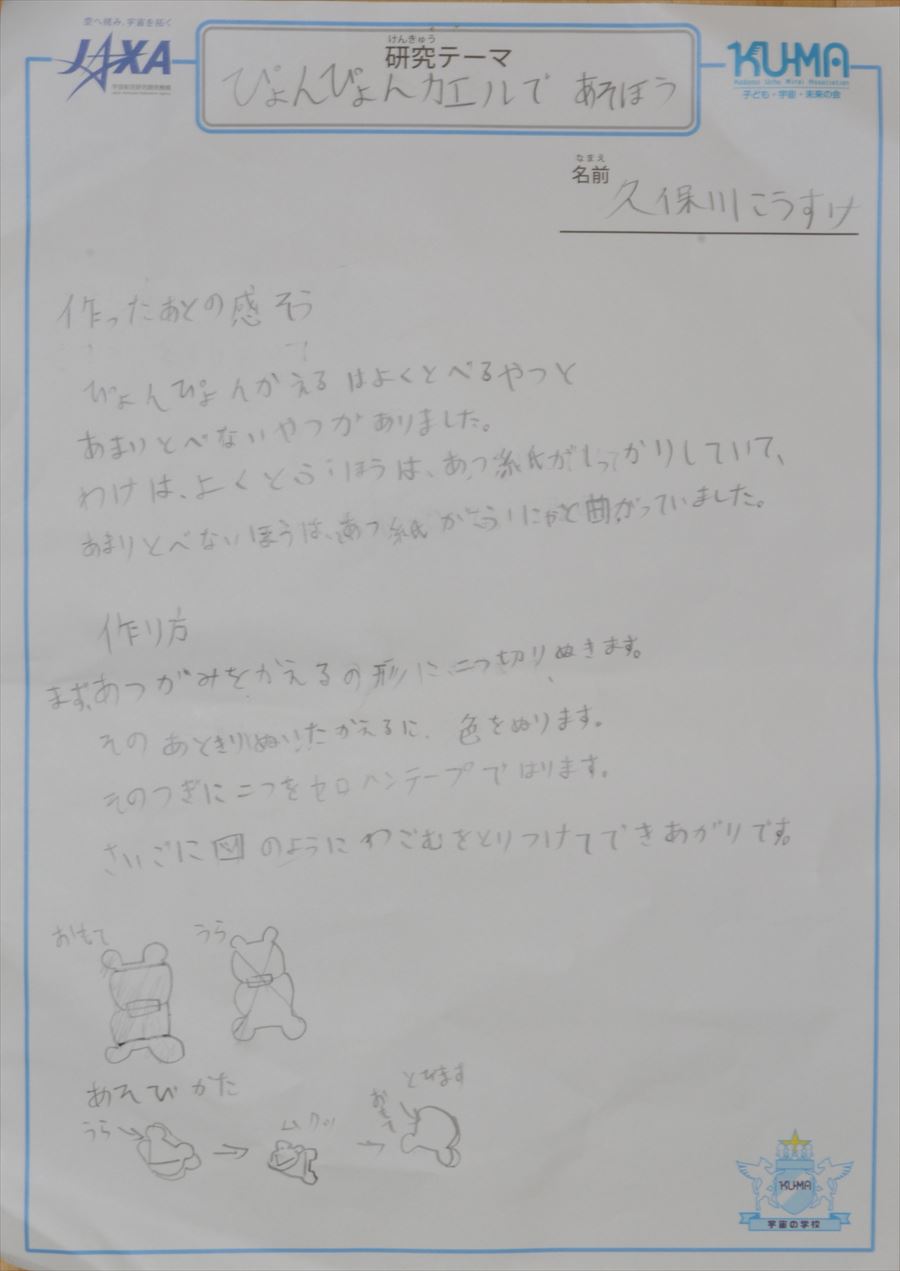 空へ挑み、宇宙を拓く
JAXA
けんきゅう
研究テーマ
ぴょんぴょんカエルで あそぼう
KU-MA
子ども・宇宙・未来の会
なまえ
名前
久保川こうすけ
作ったあとの感そう
ぴょんぴょんかえるはよくとべるやつと
あまりとべないやつがありました。
わけは、よくとぶほうは、あつ紙がしっかりしていて、
あまりとべないほうは、あつ紙がふにゃと曲がっていました。
作り方
まず、あつがみをかえるの形に、二つ切りぬきます。
そのあときりぬいたかえるに、色をぬります。
そのつぎに二つをセロハンテープではります。
さいごに図のようにわごむをとりつけてできあがりです。
おもて
うら
あそびかた
とびます
うら
ムクッ
おもて
KU-MA
宇宙の学校